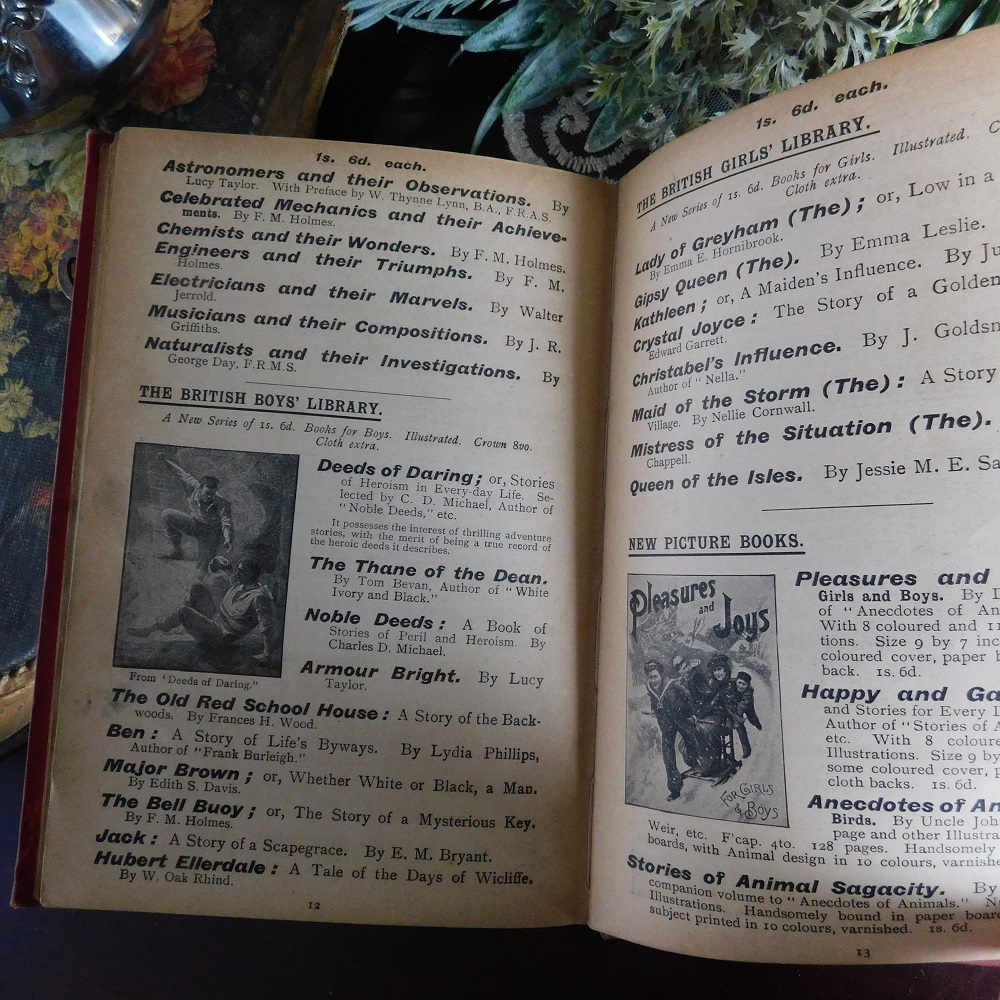 1s. 6d. each.
Astronomers and their Observations. By
Lucy Taylor. With Preface by W. Thynne Lynn, B.A., F.R.A.S.
Celebrated Mechanics and their Achieve-
ments. By F. M. Holmes.
Chemists and their Wonders. By F. M. Holmes.
Engineers and their Triumphs. By F. M.
Holmes.
Electricians and their Marvels. By Walter
Jerrold.
Musicians and their Compositions. By J. R.
Griffiths.
Naturalists and their Investigations. By
George Day, F.R.M.S.
THE BRITISH BOYS' LIBRARY.
A New Series of 1s. 6d. Books for Boys. Illustrated. Crown 8vo.
Cloth extra.
Deeds of Daring; or, Stories
of Heroism in Every-day Life. Se-
lected by C. D. Michael, Author of
"Noble Deeds," etc.
It possesses the interest of thrilling adventure
stories, with the merit of being a true record of
the heroic deeds it describes.
The Thane of the Dean.
By Tom Bevan, Author of "White
Ivory and Black."
Noble Deeds: A Book of
Stories of Peril and Heroism. By
Charles D. Michael.
Armour Bright. By Lucy
Taylor.
From 'Deeds of Daring."
The Old Red School House: A Story of the Back-
woods. By Frances H. Wood.
Ben: A Story of Life's Byways. By Lydia Phillips,
Author of "Frank Burleigh."
Major Brown; or, Whether White or Black, a Man.
By Edith S. Davis.
The Bell Buoy; or, The Story of a Mysterious Key.
By F. M. Holmes.
Jack: A Story of a Scapegrace. By E. M. Bryant.
Hubert Ellerdale: A Tale of the Days of Wicliffe.
By W. Oak Rhind.
12
1s. 6d. each.
THE BRITISH GIRLS' LIBRARY.
A New Series of 1s. 6d. Books for Girls. Illustrated.
Cloth extra.
Lady of Greyham (The); or, Low in a
By Emma E. Hornibrook.
Gipsy Queen (The). By Emma Leslie.
Kathleen; or, A Maiden's Influence. By
Crystal Joyce: The Story of a Golden
Edward Garrett.
Christabel's Influence. By J.
Author of "Nella."
Maid of the Storm (The): A Story
Village. By Nellie Cornwall.
Mistress of the Situation (The).
Chappell.
Queen of the Isles. By Jessie M. E.
NEW PICTURE BOOKS.
Pleasures
and
Joys
For Girls
& Boys
Pleasures and
Girls and Boys. By
of "Anecdotes of
With 8 coloured and
tions. Size 9 by 7
coloured cover, paper
back. 1s. 6d.
Happy and
and Stories for Every
Author of "Stories of
etc. With 8
Illustrations. Size 9 by
some coloured cover,
cloth backs. 1s. 6d.
Anecdotes of
Birds. By Uncle
page and other
Weir, etc. F'cap. 4to. 128 pages. Handsomely
boards, with Animal design in 10 colours,
Stories of Animal Sagacity. By
companion volume to "Anecdotes of Animals."
Illustrations. Handsomely bound in paper
subject printed in 10 colours, varnished. 1s. 6d.
13